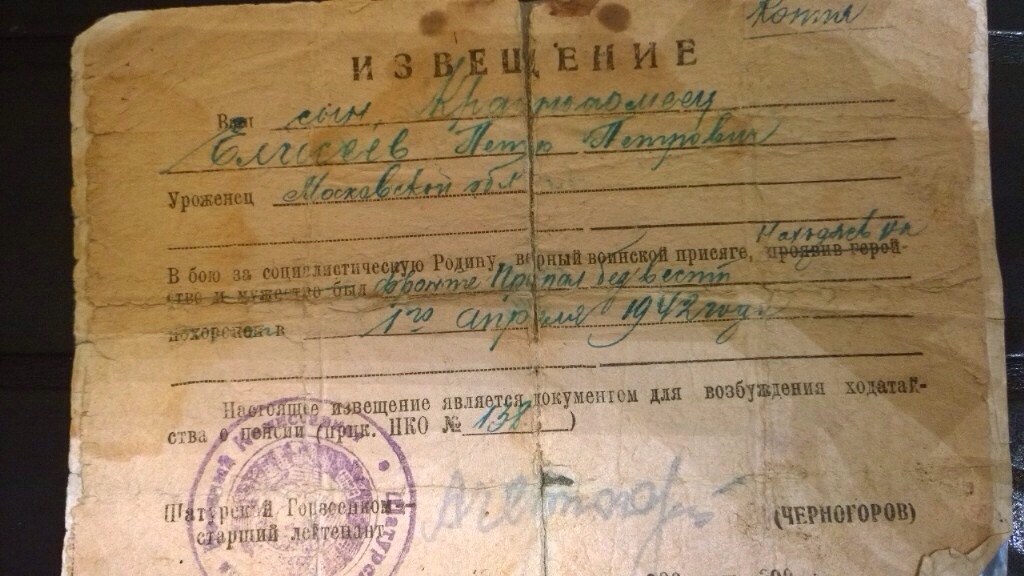 Копия
ИЗВЕЩЕНИЕ
Ваш сын, Красноармеец
Елисеев Петр Петрович
Уроженец Московской обл
В бою за социалистическую Родину, верный воинской присяге, проявив герой-
Находясь на
ство и мужество был фронте Пропал без вести
похоронен в 1го апреля 1942 года
Настоящее извещение является документом для возбуждения ходатай-
ства о пенсии (прик. НКО № 138)
Шатурский Горвоенком—
старший лейтенант (ЧЕРНОГОРОВ)